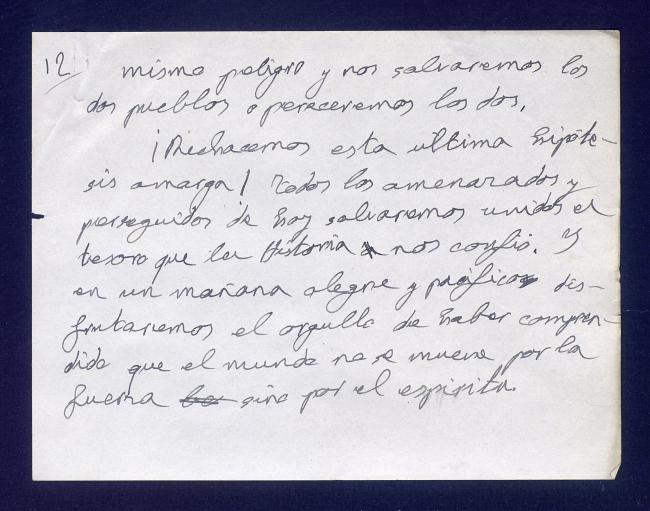 12 mismo peligro y nos salvaremos los
dos pueblos o pereceremos los dos.
¡Rechacemos esta última hipóte-
sis amarga! Todos los amenazados y
perseguidos de hoy salvaremos unidos el
tesoro que la Historia nos confió. Y
en un mañana alegre y pacífico dis-
frutaremos el orgullo de haber compren-
dido que el mundo no se mueve por la
fuerza sino por el espíritu.